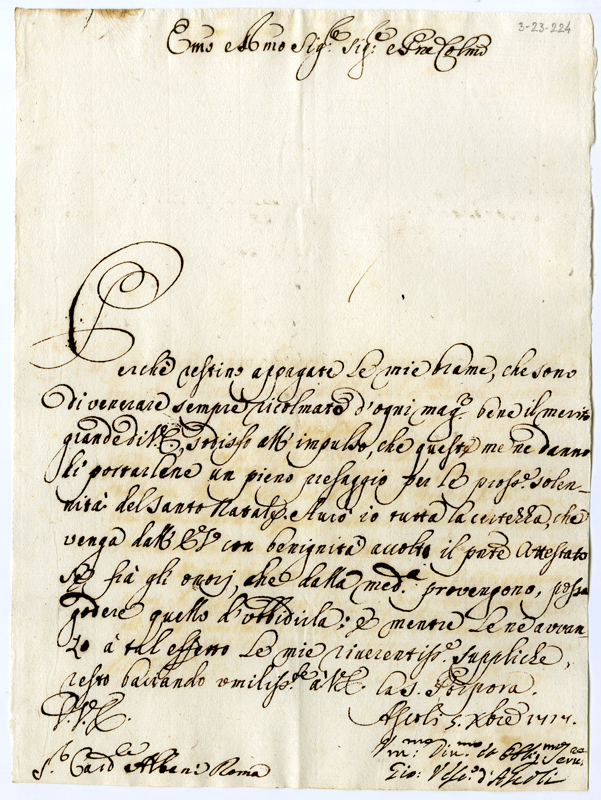 3-23-224
Emo e Rmo Sig.re Sig.re e Pne Colmo
Perchè restino appagate le mie brame, che sono
di venerare sempre ricolmato d'ogni mag.r bene il merito
grande di V.E., sodisfo all'impulso, che queste me ne danno
di portarlene un pieno presaggio per le pross.e solen-
nità del Santo Natale. Avrò io tutta la certezza, che
venga dall'E.V. con benignità accolto il pnte attestato
se frà gli onori, che dalla med.a provengono, possa
godere quello d'vbbidirla; e mentre le ne avvan-
zo à tal effetto le mie riverentiss.e suppliche,
resto baciando vmiliss.te à V.E. la s. Porpora.
D. V. E.
Ascoli 5. Xbre 1717.
Vm.mo Div.mo ed Obblig.mo Serv.re
S.r Card.le Albani Roma
Gio: Vesc.o d'Ascoli